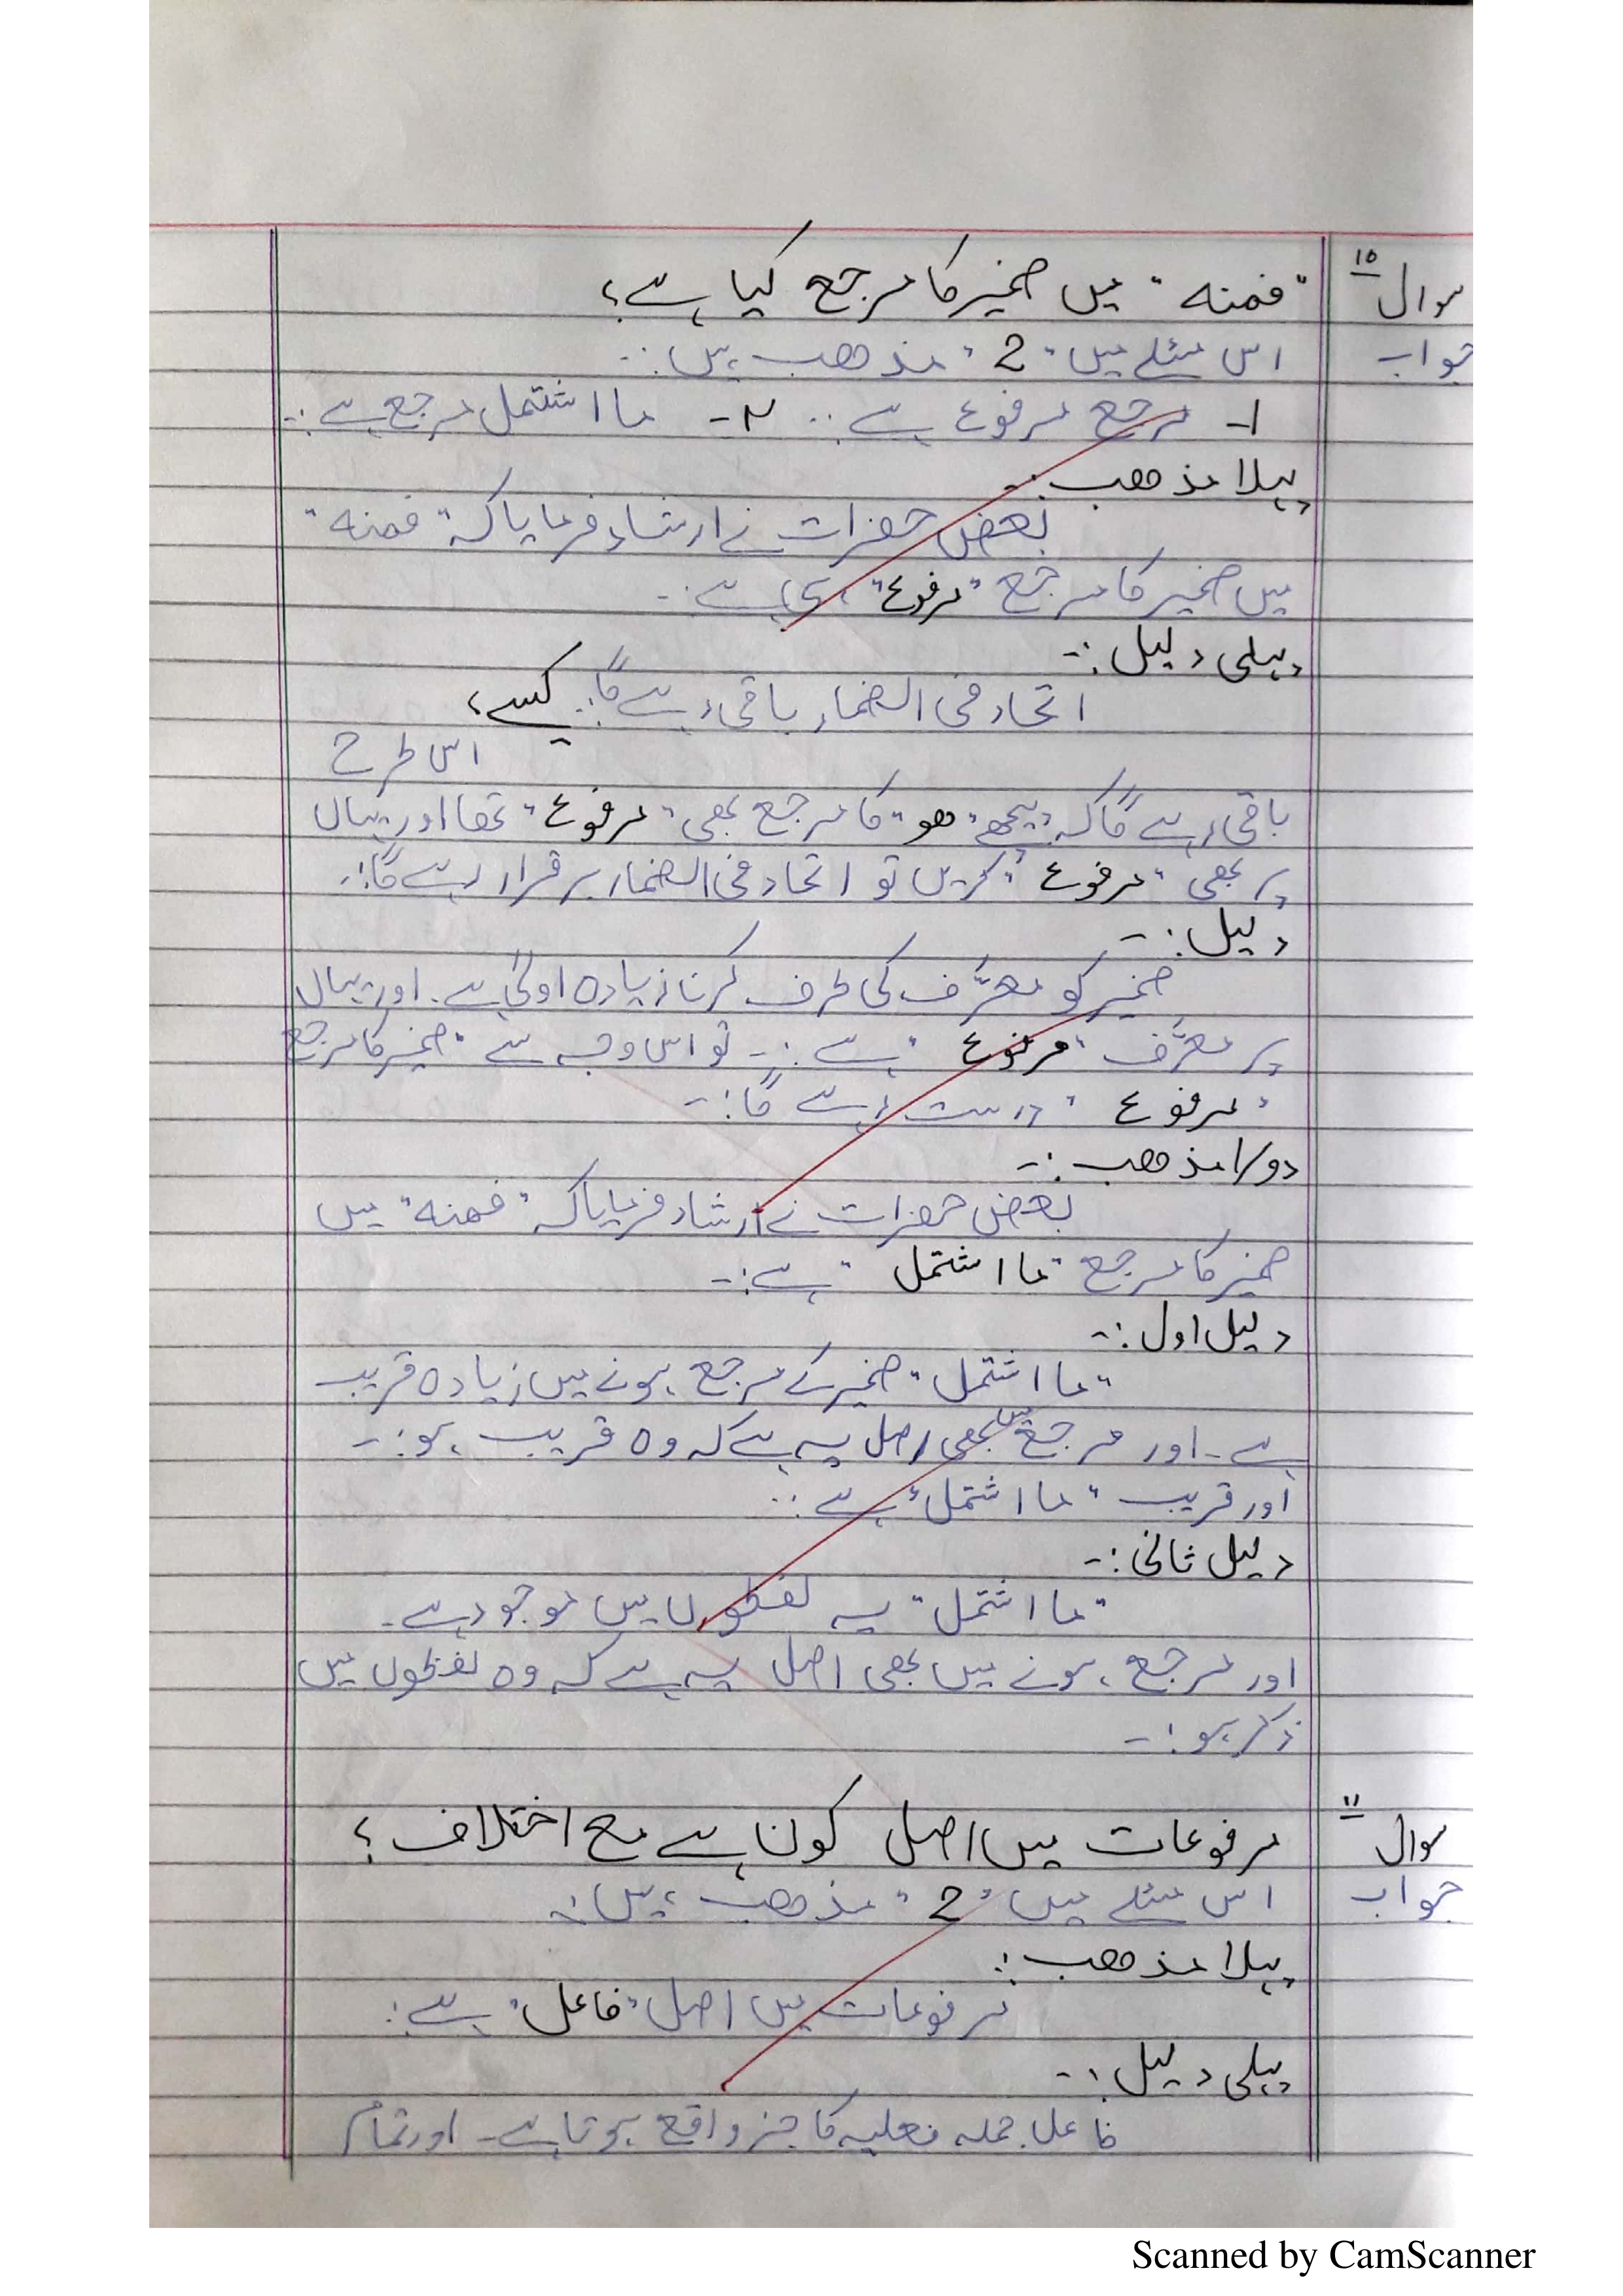 سوال ۱۰ "فمنه" میں ضمیر کا مرجع کیا ہے؟
جواب اس مسئلے میں "2" مذھب ہیں:۔
۱۔ مرجع مرفوع ہے:۔ ۲۔ ما اشتمل مرجع ہے:۔
پہلا مذھب:۔
بعض حضرات نے ارشاد فرمایا کہ "فمنه"
میں ضمیر کا مرجع "مرفوع" ہی ہے:۔
پہلی دلیل:۔
اتحاد فی الضمار باقی رہے گا:۔ کیسے؟
اس طرح
باقی رہے گا کہ پیچھے "ھو" کا مرجع بھی "مرفوع" تھا اور یہاں
پر بھی "مرفوع" کریں تو اتحاد فی الضمار برقرار رہے گا:۔
دلیل:۔
ضمیر کو معرَّف کی طرف کرنا زیادہ اولیٰ ہے۔ اور یہاں
پر معرَّف "مرفوع" ہے:۔ تو اس وجہ سے "ضمیر کا مرجع
"مرفوع" درست رہے گا:۔
دوسرا مذھب:۔
بعض حضرات نے ارشاد فرمایا کہ "فمنه" میں
ضمیر کا مرجع "ما اشتمل" ہے:۔
دلیل اول:۔
"ما اشتمل" ضمیر کے مرجع ہونے میں زیادہ قریب
ہے۔ اور مرجع میں بھی اصل یہ ہے کہ وہ قریب ہو:۔
اور قریب "ما اشتمل" ہے:۔
دلیل ثانی:۔
"ما اشتمل" یہ لفظوں میں موجود ہے۔
اور مرجع ہونے میں بھی اصل یہ ہے کہ وہ لفظوں میں
ذکر ہو:۔
سوال ۱۱ مرفوعات میں اصل کون ہے مع اختلاف؟
جواب اس مسئلے میں "2" مذھب ہیں:۔
پہلا مذھب:۔
مرفوعات میں اصل "فاعل" ہے:۔
پہلی دلیل:۔
فاعل جملہ فعلیہ کا جز واقع ہوتا ہے۔ اور تمام
Scanned by CamScanner